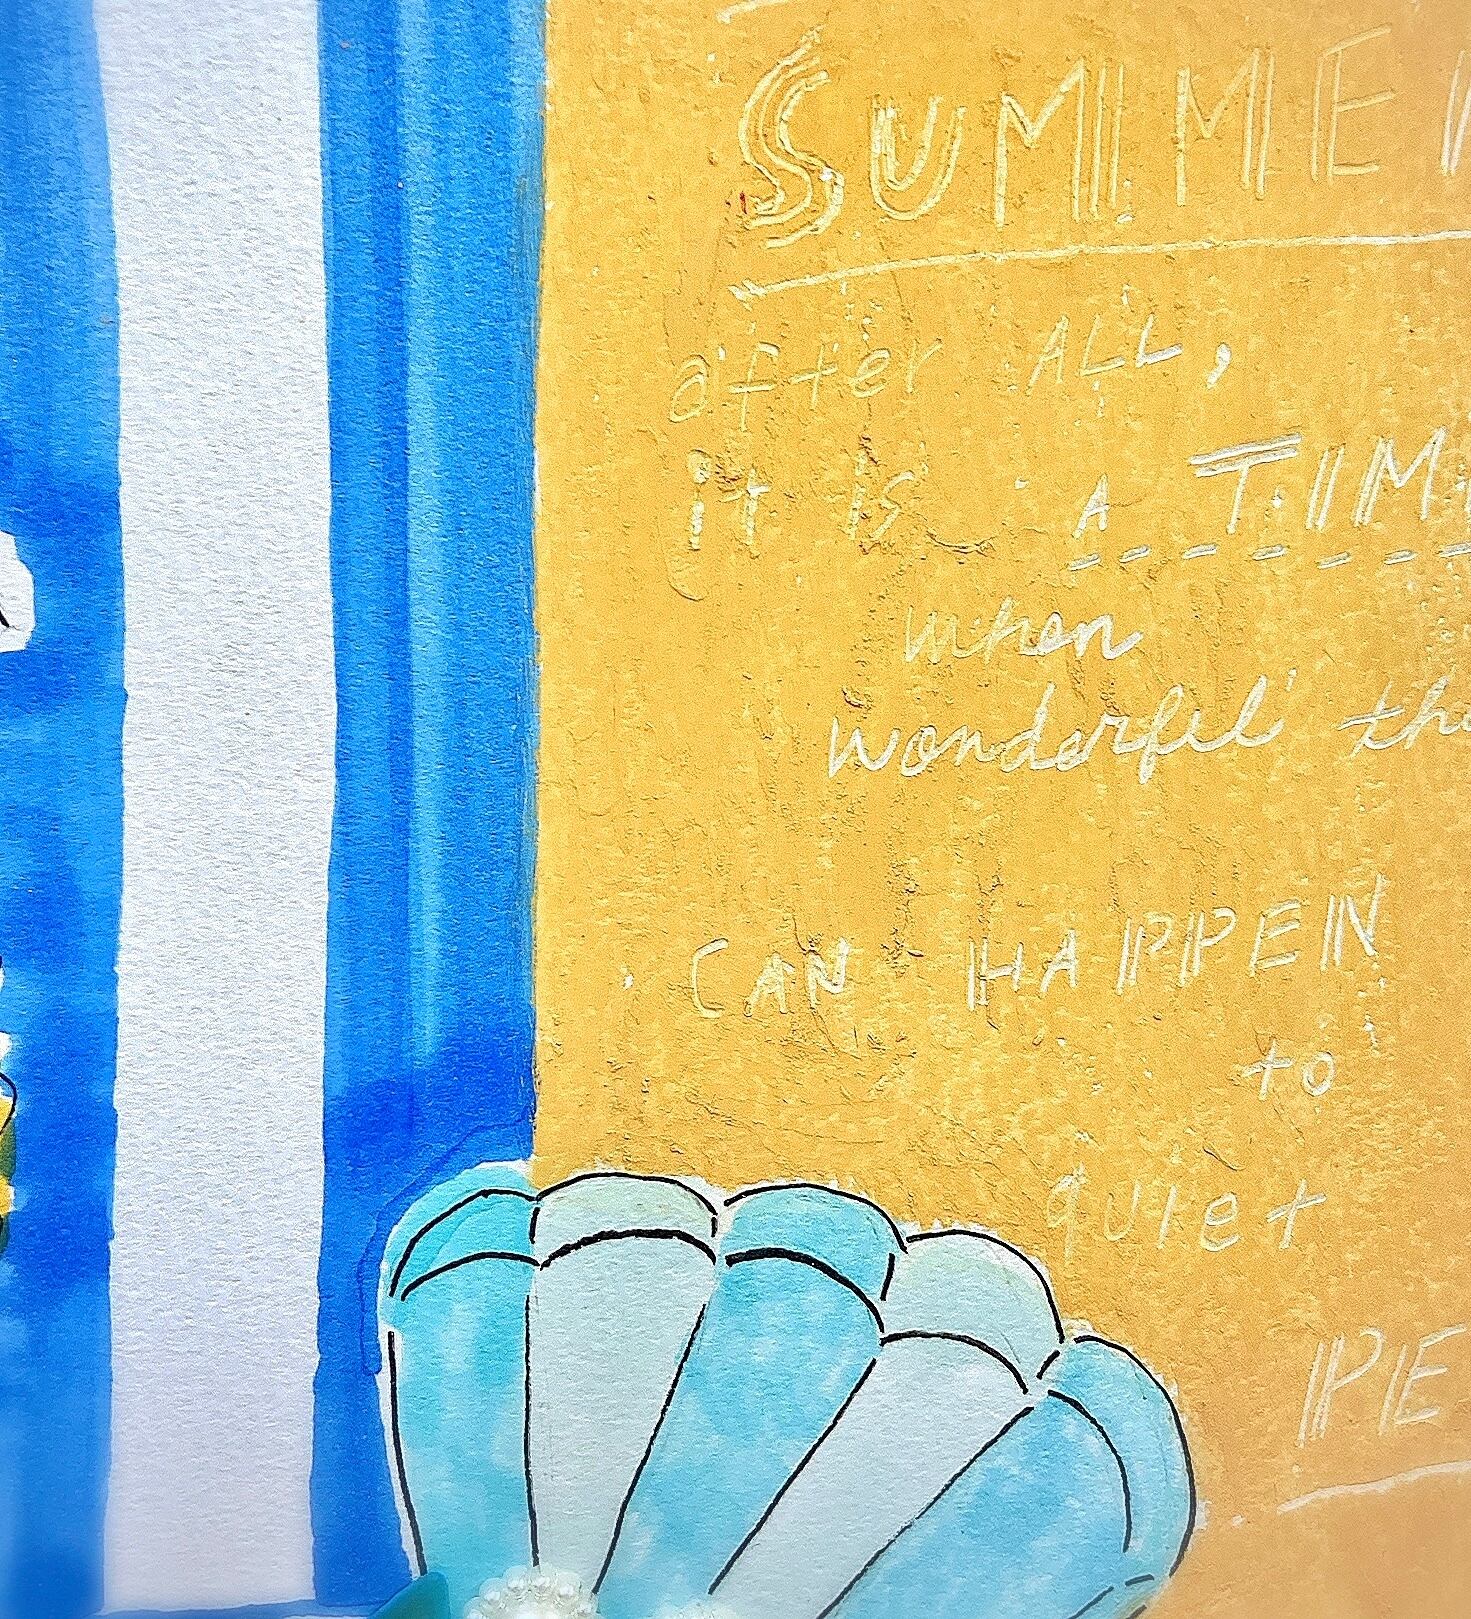 SUMME
after ALL,
it is A TIM
when
wonderful th
CAN HAPPEN
to
quiet
PE